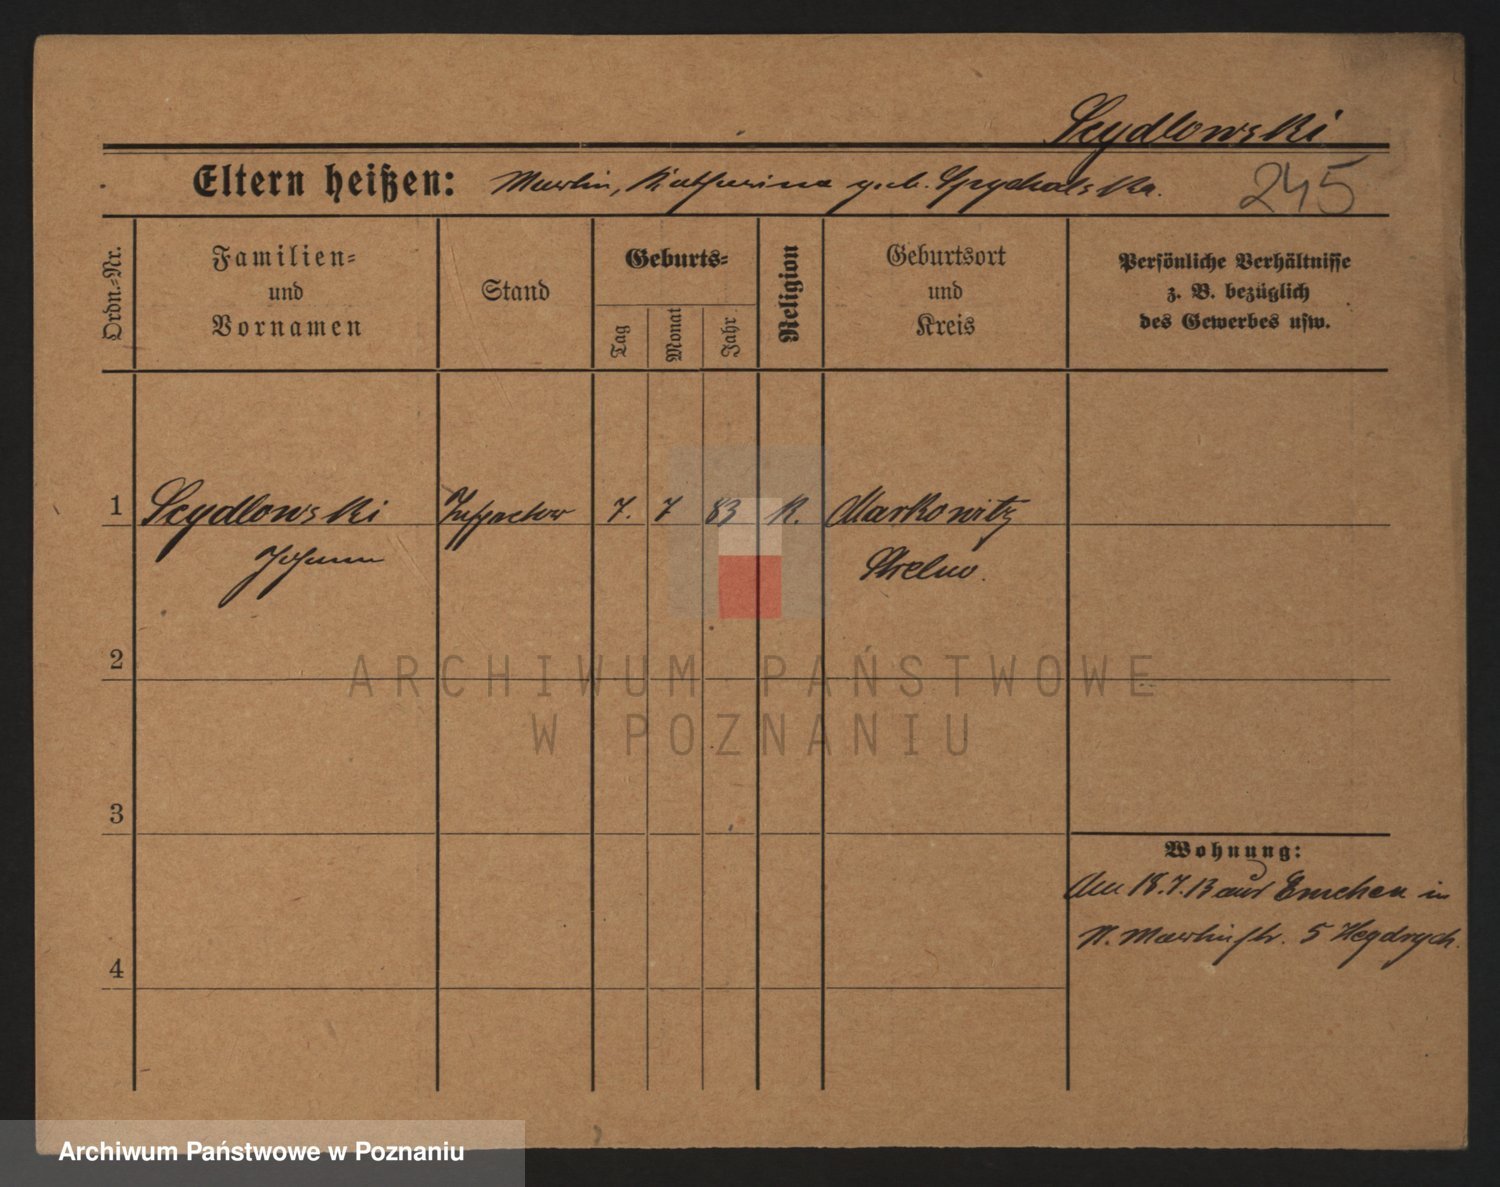 Seydlowski
Eltern heißen: Martin, Katharina geb. Spychalska.
245
Ordn.-Nr.
Familien-
und
Vornamen
Stand
Geburts-
Tag
Monat
Jahr
Religion
Geburtsort
und
Kreis
Persönliche Verhältnisse
z. B. bezüglich
des Gewerbes usw.
1 Seydlowski Inspector 7. 7 83 K. Markowitz
Johann Strelno.
2
ARCHIWUM PAŃSTWOWE
W POZNANIU
3
Wohnung:
Am 18.7.13 aus Emchen in
Martinstr. 5
4
Archiwum Państwowe w Poznaniu